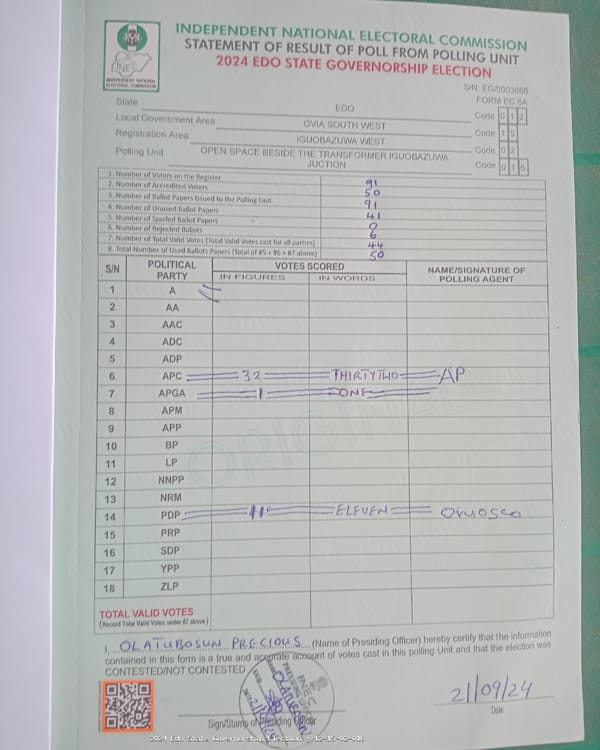 INEC
INDEPENDENT NATIONAL
ELECTORAL COMMISSION
INDEPENDENT NATIONAL ELECTORAL COMMISSION
STATEMENT OF RESULT OF POLL FROM POLLING UNIT
2024 EDO STATE GOVERNORSHIP ELECTION
S/N: EG/0003866
FORM EC 8A
State EDO Code 0 1 2
Local Government Area OVIA SOUTH WEST Code 1 5
Registration Area IGUOBAZUWA WEST Code 0 2
Polling Unit OPEN SPACE BESIDE THE TRANSFORMER IGUOBAZUWA JUCTION Code 0 1 6
1. Number of Voters on the Register 91
2. Number of Accredited Voters 50
3. Number of Ballot Papers Issued to the Polling Unit 91
4. Number of Unused Ballot Papers 41
5. Number of Spoiled Ballot Papers 0
6. Number of Rejected Ballots 6
7. Number of Total Valid Votes (Total Valid Votes cast for all parties) 44
8. Total Number of Used Ballots Papers (Total of #5 + #6 + #7 above) 50
S/N POLITICAL PARTY VOTES SCORED NAME/SIGNATURE OF POLLING AGENT
IN FIGURES IN WORDS
1 A
2 AA
3 AAC
4 ADC
5 ADP
6 APC 32 THIRTYTWO AP
7 APGA 1 ONE
8 APM
9 APP
10 BP
11 LP
12 NNPP
13 NRM
14 PDP 11 ELEVEN OMOSCO
15 PRP
16 SDP
17 YPP
18 ZLP
ORIGINAL
TOTAL VALID VOTES
(Record Total Valid Votes under #7 above)
I, OLATUBOSUN PRECIOUS (Name of Presiding Officer) hereby certify that the information
contained in this form is a true and accurate account of votes cast in this polling Unit and that the election was
CONTESTED/NOT CONTESTED
21/09/24
Sign/Stamp of Presiding Officer
Date
2024 Edo State Governorship Election - 12-15-02-016